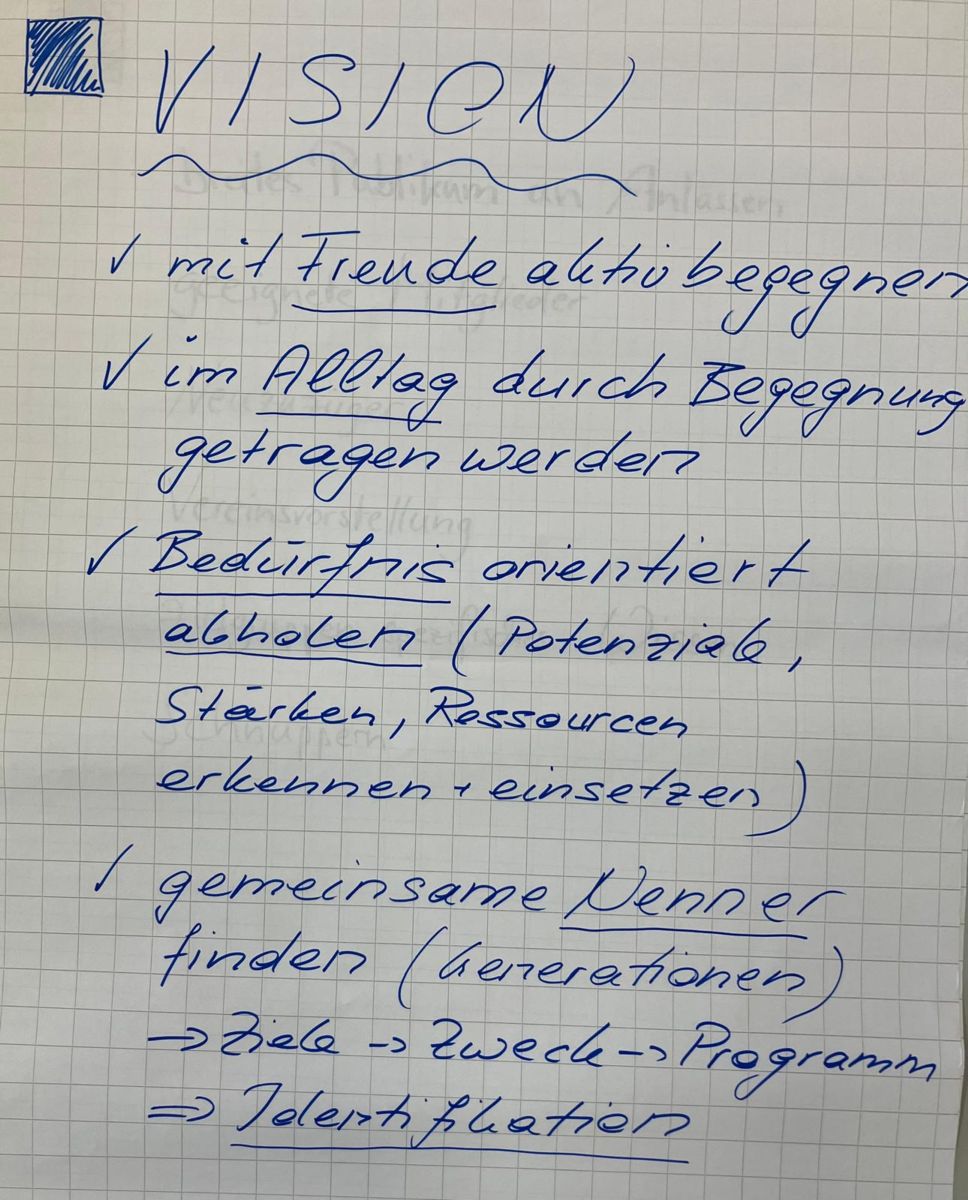 VISION
✓ mit Freude aktiv begegnen
✓ im Alltag durch Begegnung
getragen werden
✓ Bedürfnis orientiert
abholen (Potenziale,
Stärken, Ressourcen
erkennen + einsetzen)
✓ gemeinsame Nenner
finden (Generationen)
→ Ziele → Zweck → Programm
⇒ Identifikation